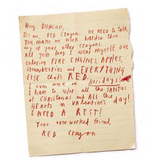 Hey Duncan,
It's me, Red Crayon. We need to talk.
You make me work harder than
any of your other crayons.
All year long I wear myself out
coloring FIRE ENGINES, APPLES,
strawberries and EVERYTHING
ELSE that's RED.
I even work on holidays!
I have to color all the Santas
at Christmas and ALL the
hearts on Valentine's Day!
I NEED A REST!
Your overworked friend,
Red Crayon